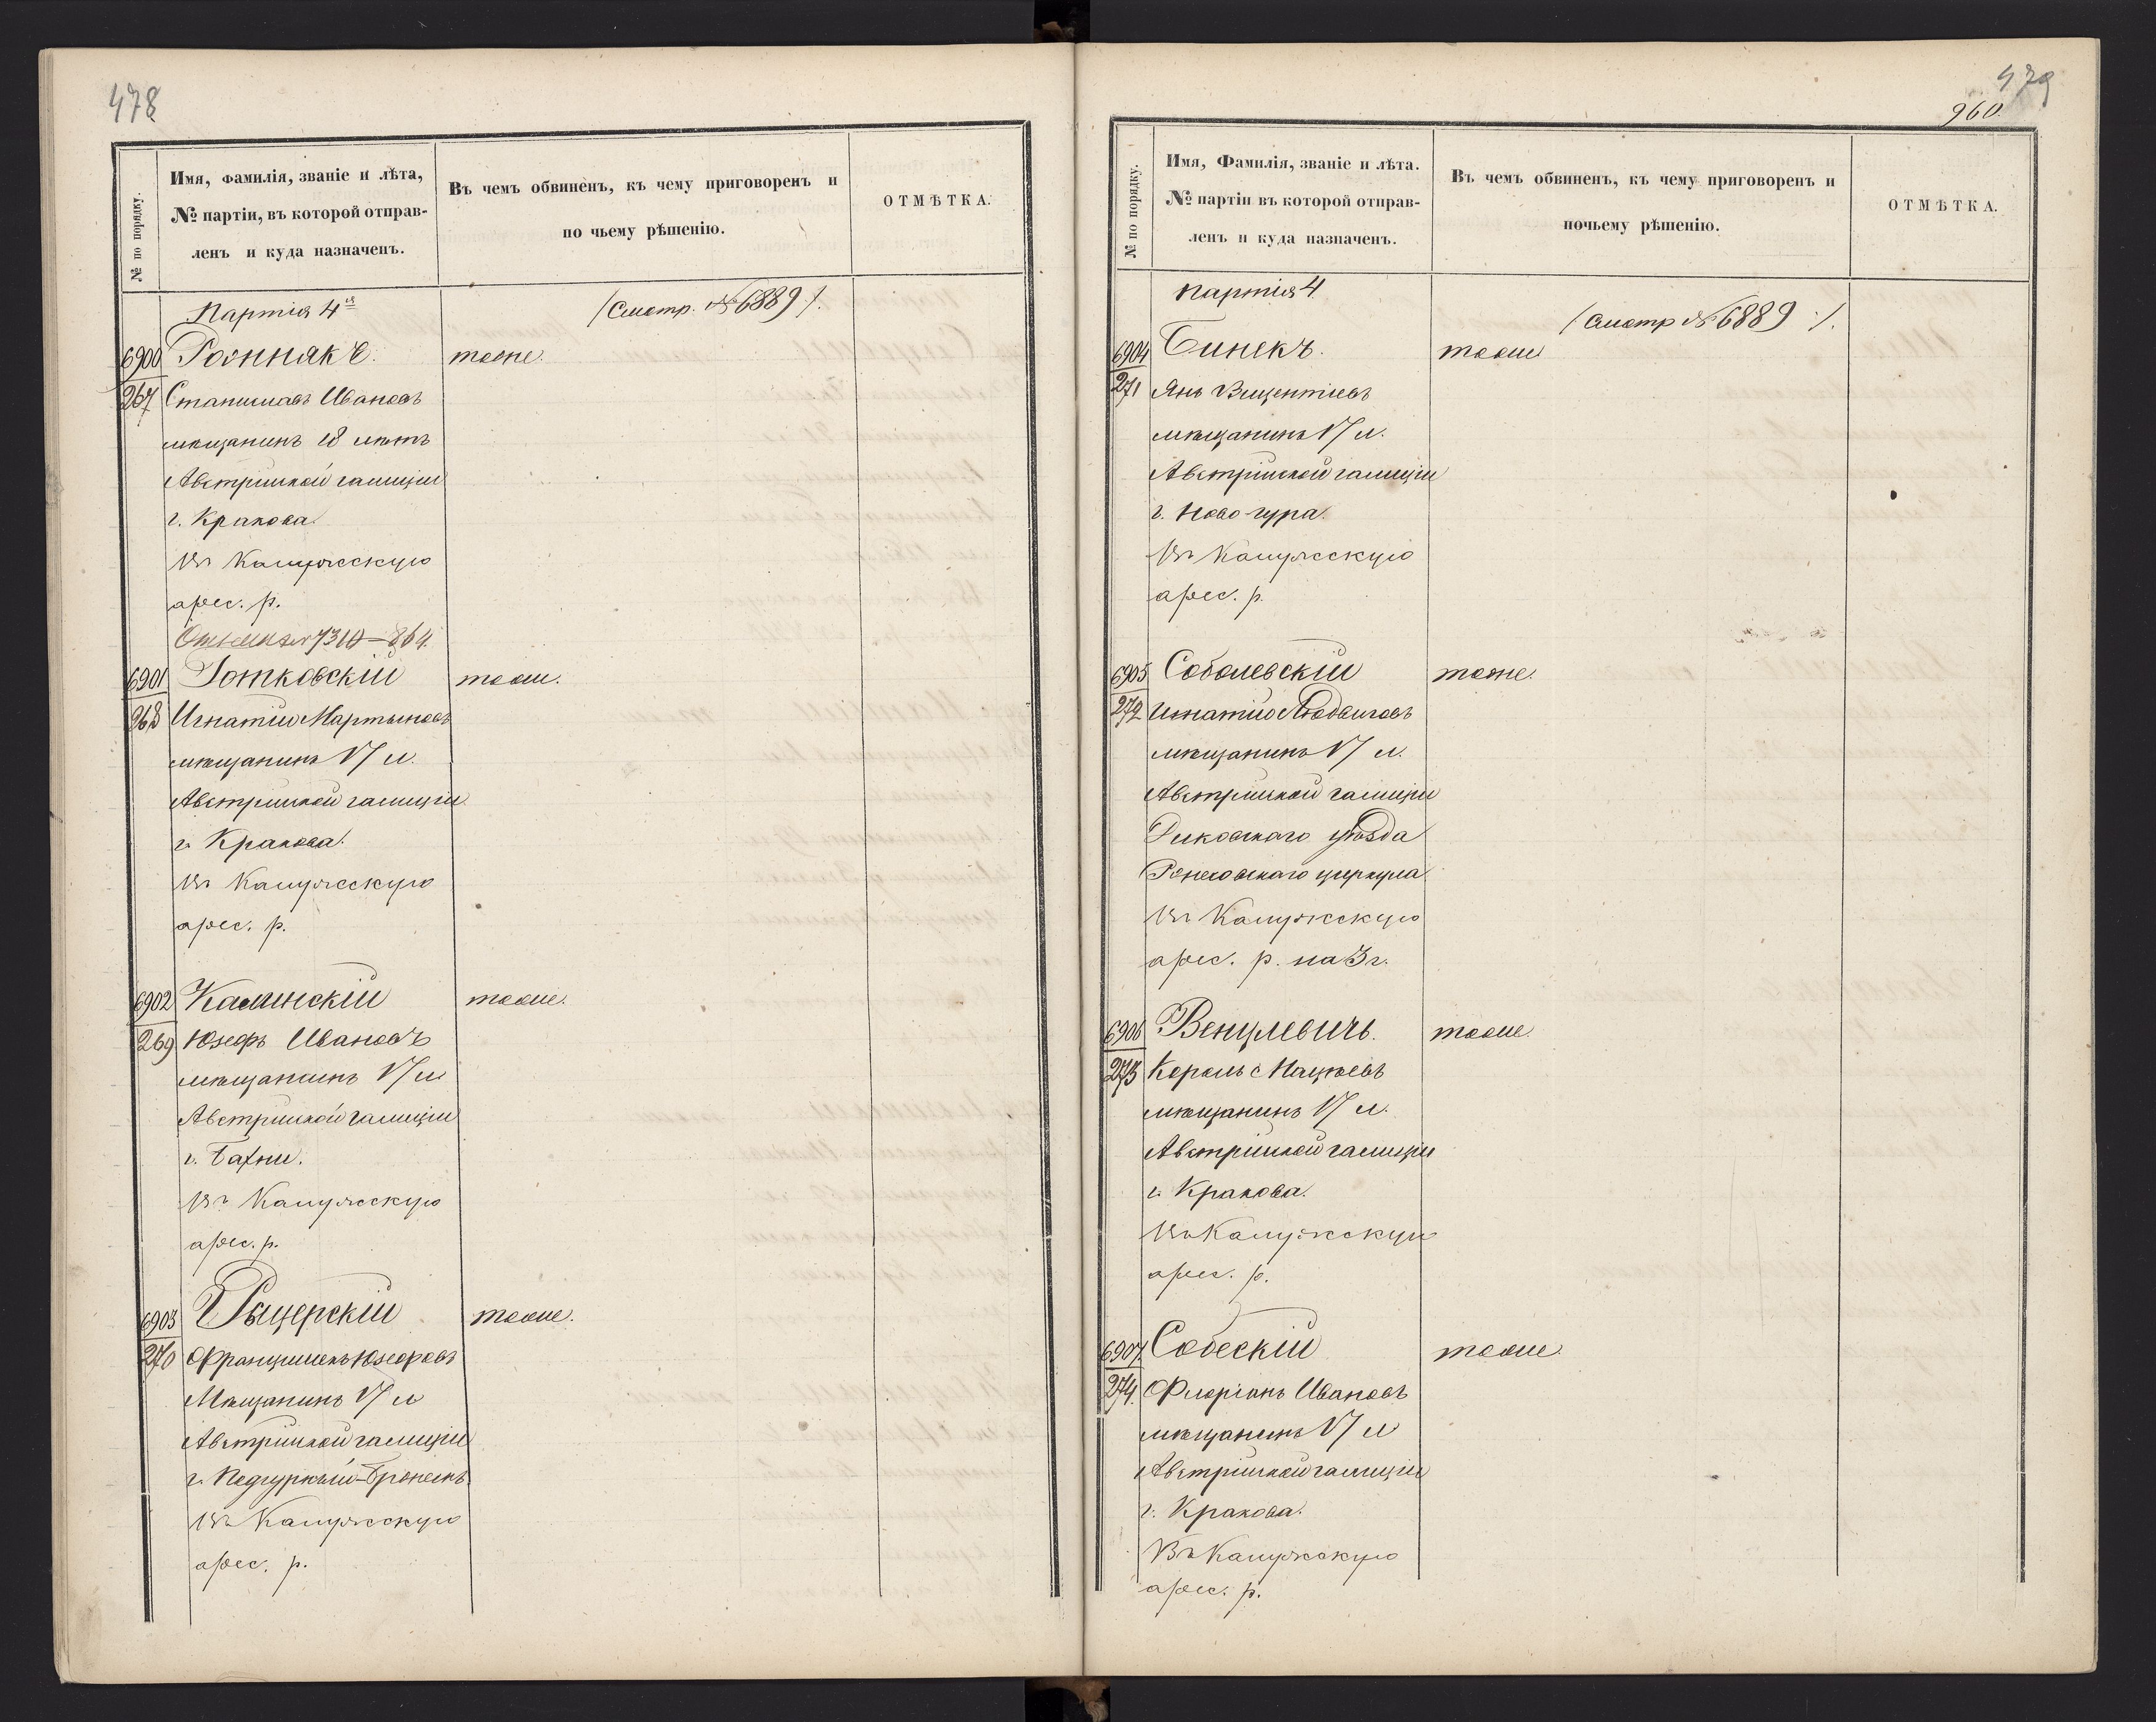 478
№ по порядку.
Имя, фамилія, званіе и лѣта,
№ партіи, въ которой отправ-
ленъ и куда назначенъ.
Въ чемъ обвиненъ, къ чему приговоренъ и
по чьему рѣшенію.
ОТМѢТКА.
Партія 4я
/Смотр. № 6889/.
6900
Роснякъ.
тоже.
267
Станиславъ Ивановъ
мѣщанинъ 18 лѣтъ
Австрійской галиціи
г. Кракова.
Въ Калужскую
арес. р.
7310—864.
6901
Готковскій
тоже.
268
Игнатій Мартыновъ
мѣщанинъ 17 л.
Австрійской галиціи
г. Кракова.
Въ Калужскую
арес. р.
6902
Калинскій
тоже.
269
Юзефъ Ивановъ
мѣщанинъ 17 л.
Австрійской галиціи
г. Бахни.
Въ Калужскую
арес. р.
6903
Рыцерскій
тоже.
270
Францишекъ Юзефовъ
Мѣщанинъ 17 л
Австрійской галиціи
г.
Въ Калужскую
арес. р.
479
960.
№ по порядку.
Имя, Фамилія, званіе и лѣта.
№ партіи въ которой отправ-
ленъ и куда назначенъ.
Въ чемъ обвиненъ, къ чему приговоренъ и
почьему рѣшенію.
ОТМѢТКА.
партія 4.
/Смотр № 6889 /.
6904
Бинекъ.
тоже
271
Янъ Вицентіевъ
мѣщанинъ 17 л.
Австрійской галиціи
г. Ново-гура.
Въ Калужскую
арес. р.
6905
Соболевскій
тоже.
272
Игнатій Людвиговъ
мѣщанинъ 17 л.
Австрійской галиціи
Диковскаго уѣзда
циркула
Въ Калужскую
арес. р. на 3 г.
6906
Венцлевичъ.
тоже.
273
Король
мѣщанинъ 17 л.
Австрійской галиціи
г. Кракова.
Въ Калужскую
арес. р.
6907.
Собескій
тоже.
274.
Флоріанъ Ивановъ
мѣщанинъ 17 л
Австрійской галиціи
г. Кракова.
Въ Калужскую
арес. р.